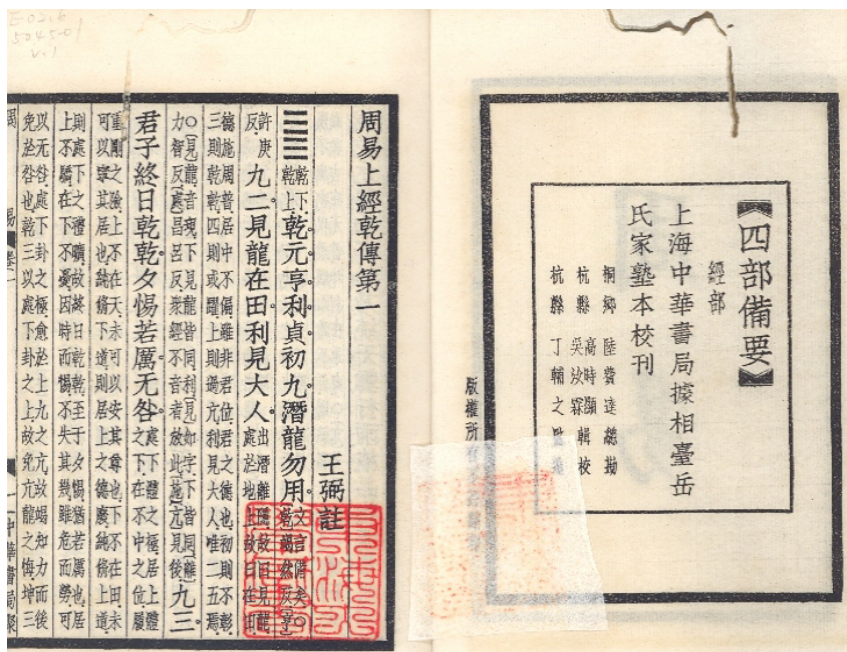 E-02.6
5045-01
v.1
【四部備要】
經部
上海中華書局據相臺岳
氏家塾本校刊
桐鄉 陸費逵 總勘
杭縣 高時顯 吳汝霖 輯校
杭縣 丁輔之 監造
版權所有
周易上經乾傳第一
王弼註
䷀乾下乾上乾元亨利貞初九潛龍勿用文言備矣○乾竭然反亨
許庚反九二見龍在田利見大人出潛離隱故曰見龍處於地上故曰在田
德施周普居中不偏雖非君位君之德也初則不彰
三則乾乾四則或躍上則過亢利見大人唯二五焉
○見龍音現下見龍皆同利見如字下皆同離
力智反處昌呂反衆經不音者放此施亢見後九三
君子終日乾乾夕惕若厲无咎處下體之極居上體之下在不中之位履
重剛之險上不在天未可以安其尊也下不在田未
可以寧其居也純脩下道則居上之德廢純脩上道
則處下之禮曠故終日乾乾至于夕惕猶若厲也居
上不驕在下不憂因時而惕不失其幾雖危而勞可
以无咎處下卦之極愈於上九之亢故竭知力而後
免於咎也乾三以處下卦之上故免亢龍之悔坤三
周易 卷一 一 中華書局聚